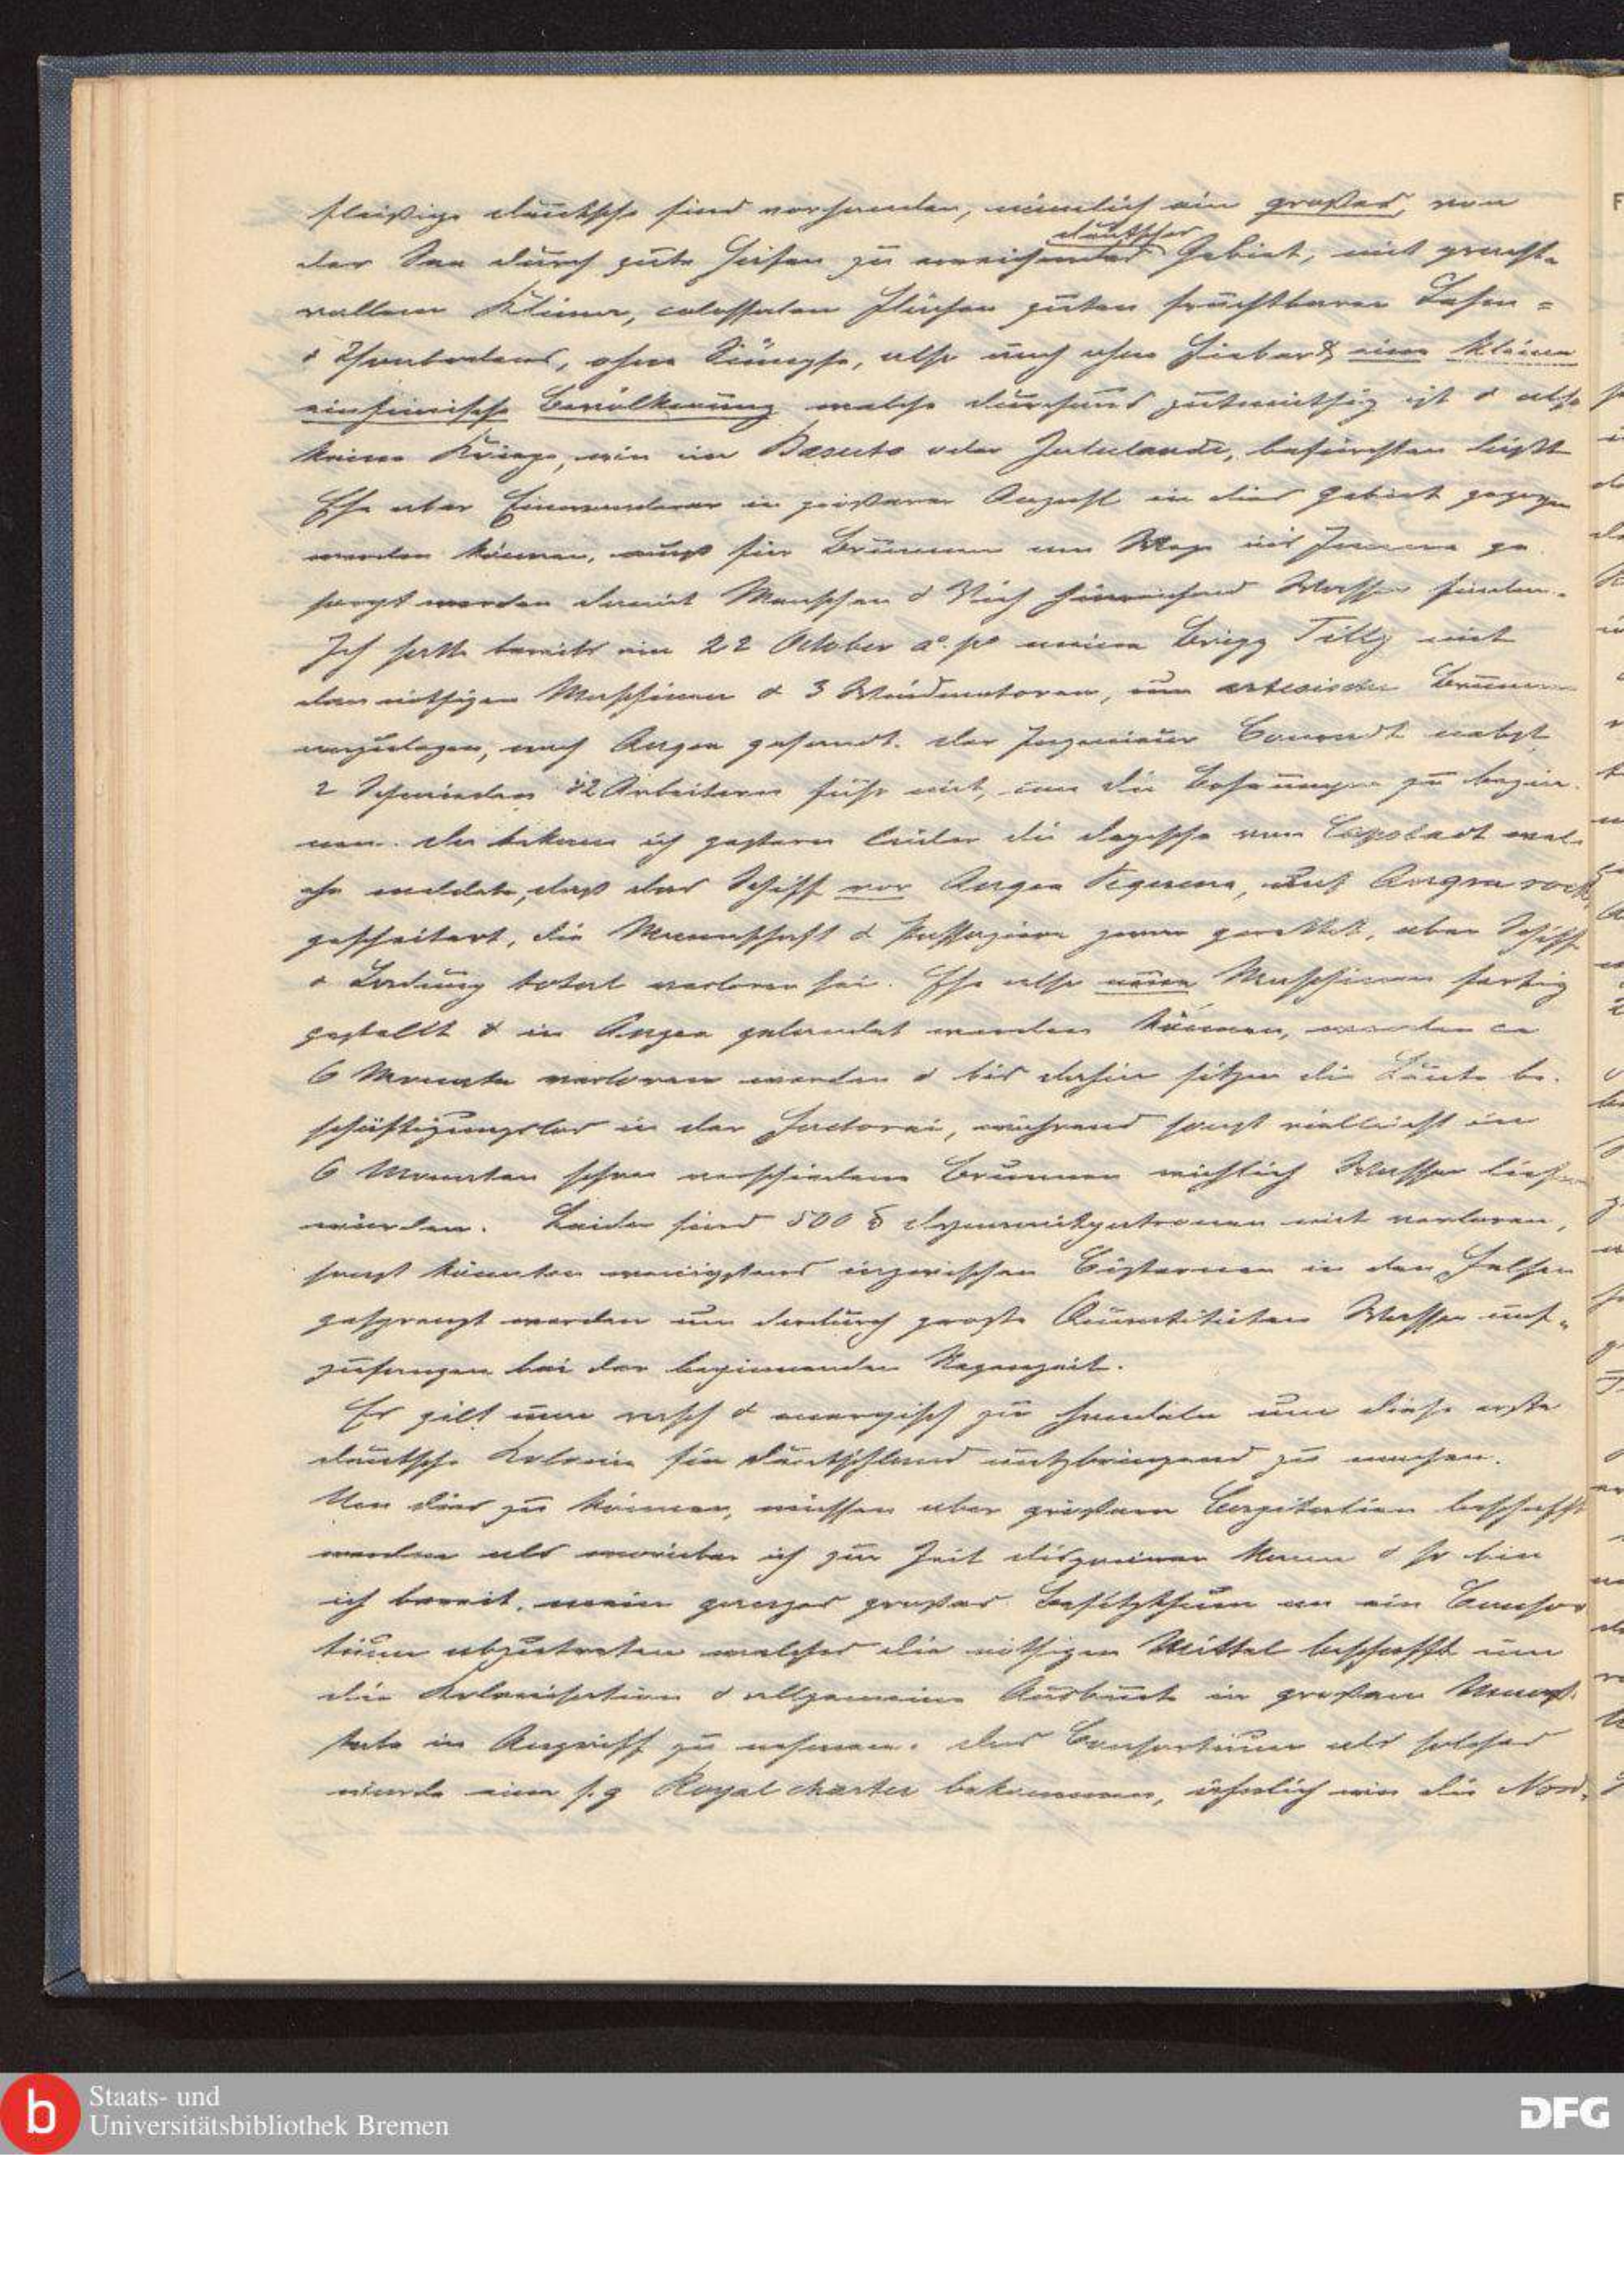 fleißige Deutsche sind vorhanden, nämlich ein großes, von
der See durch gute Häfen zu erreichendes deutsches Gebiet, mit pracht-
vollem Klima, colossalen Flächen guten fruchtbaren Lehm-
& Thonbodens, ohne Sümpfe, also auch ohne Fieber & eine kleine
einheimische Bevölkerung welche durchaus gutmüthig ist & also
keine Kriege, wie im Basuto oder Zululande, befürchten läßt
Ehe aber Einwanderer in größerer Anzahl in dies Gebiet gezogen
werden können, muß für Brunnen am Wege ins Innere ge-
sorgt werden damit Menschen & Vieh hinreichend Wasser finden.
Ich hatte bereits am 22 October a. p. meine Brigg Tilly mit
den nöthigen Maschinen & 3 Windmotoren, um artesische Brunnen
anzulegen, nach Angra gesandt. Der Ingenieur Conradt nebst
2 Schmieden & 2 Arbeitern fuhr mit, um die Bohrungen zu begin-
nen. Da bekam ich gestern leider die Depesche von Capstadt wel-
che meldete, daß das Schiff vor Angra Pequena, auf Angra rock
gescheitert, die Mannschaft & Passagiere zwar gerettet, aber Schiff
& Ladung total verloren sei. Ehe also neue Maschinen fertig
gestellt & in Angra gelandet werden können, werden ca
6 Monate verloren werden & bis dahin sitzen die Leute be-
schäftigungslos in der Factorei, während sonst vielleicht in
6 Monaten schon verschiedene Brunnen reichlich Wasser liefern
würden. Leider sind 500 ℔ Dynamitpatronen mit verloren,
sonst könnten wenigstens inzwischen Cisternen in den Felsen
gesprengt werden um dadurch große Quantitäten Wasser auf-
zufangen bei der beginnenden Regenzeit.
Es gilt nun rasch & energisch zu handeln um diese erste
deutsche Kolonie für Deutschland nutzbringend zu machen.
Um dies zu können, müssen aber größere Capitalien beschafft
werden als worüber ich zur Zeit disponieren kann & so bin
ich bereit, mein ganzes großes Besitzthum an ein Consor
tium abzutreten welches die nöthigen Mittel beschafft um
die Kolonisation & allgemeine Ausbeute in großem Maaß-
stabe in Angriff zu nehmen. Das Consortium als solches
würde eine s. g. Royal charter bekommen, ähnlich wie die Nord-
Staats- und
Universitätsbibliothek Bremen
DFG